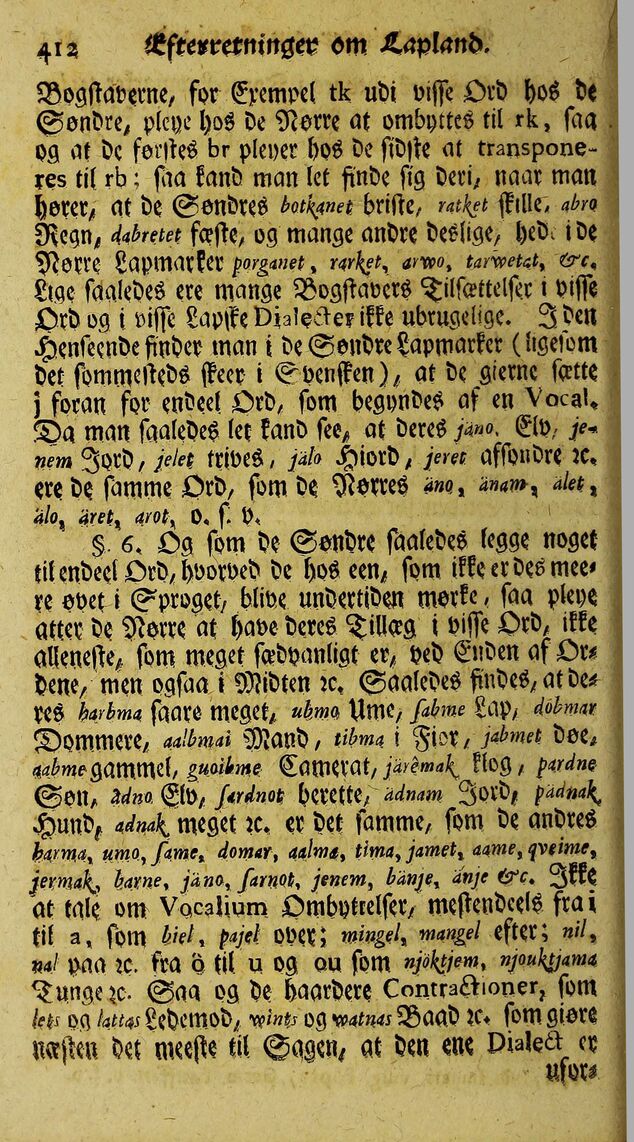 412 Efterretninger om Lapland.
Bogstaverne, for Exempel tk udi visse Ord hos de
Søndre, pleye hos de Nørre at ombyttes til rk, saa
og at de førstes br pleyer hos de sidste at transpone-
res til rb; saa kand man let finde sig deri, naar man
hører, at de Søndres botkanet briste, ratket skille, abro
Regn, dabretet fæste, og mange andre deslige, hed. i de
Nørre Lapmarker porganet, rarket, arwo, tarwetat, &c.
Lige saaledes ere mange Bogstavers Tilsættelser i visse
Ord og i visse Lapske Dialecter ikke ubrugelige. I den
Henseende finder man i de Søndre Lapmarker (ligesom
det sommesteds skeer i Svensken), at de gierne sætte
j foran for endeel Ord, som begyndes af en Vocal.
Da man saaledes let kand see, at deres jäno, Elv, je-
nem Jord, jelet trives, jälo Hiord, jeret affondre ꝛc.
ere de samme Ord, som de Nørres äno, änam, älet,
älo, äret, arot, o. s. v.
§. 6. Og som de Søndre saaledes legge noget
til endeel Ord, hvorved de hos een, som ikke er des mee-
re øvet i Sproget, blive undertiden mørke, saa pleye
atter de Nørre at have deres Tillæg i visse Ord, ikke
alleneste, som meget sædvanligt er, ved Enden af Or-
dene, men ogsaa i Midten ꝛc. Saaledes findes, at de-
res harbma saare meget, ubmo Ume, sabme Lap, dobmar
Dommere, aalbmai Mand, tibma i Fior, jabmet døe,
aabme gammel, guoibme Camerat, järêmak klog, pardne
Søn, ädno Elv, sardnot berette, ädnam Jord, pädnak
Hund, adnak meget ꝛc. er det samme, som de andres
harma, umo, same, domar, aalma, tima, jamet, aame, qveime,
jermak, barne, jäno, sarnot, jenem, bänje, änje &c. Ikke
at tale om Vocalium Ombyttelser, mestendeels fra i
til a, som biel, pajel over; mingel, mangel efter; nil,
nal paa ꝛc. fra ö til u og ou som njöktjem, njouktjama
Tunge ꝛc. Saa og de haardere Contractioner, som
lets og lattas Ledemod, wints og watnas Baad ꝛc. som giøre
næsten det meeste til Sagen, at den ene Dialect er
ufor-